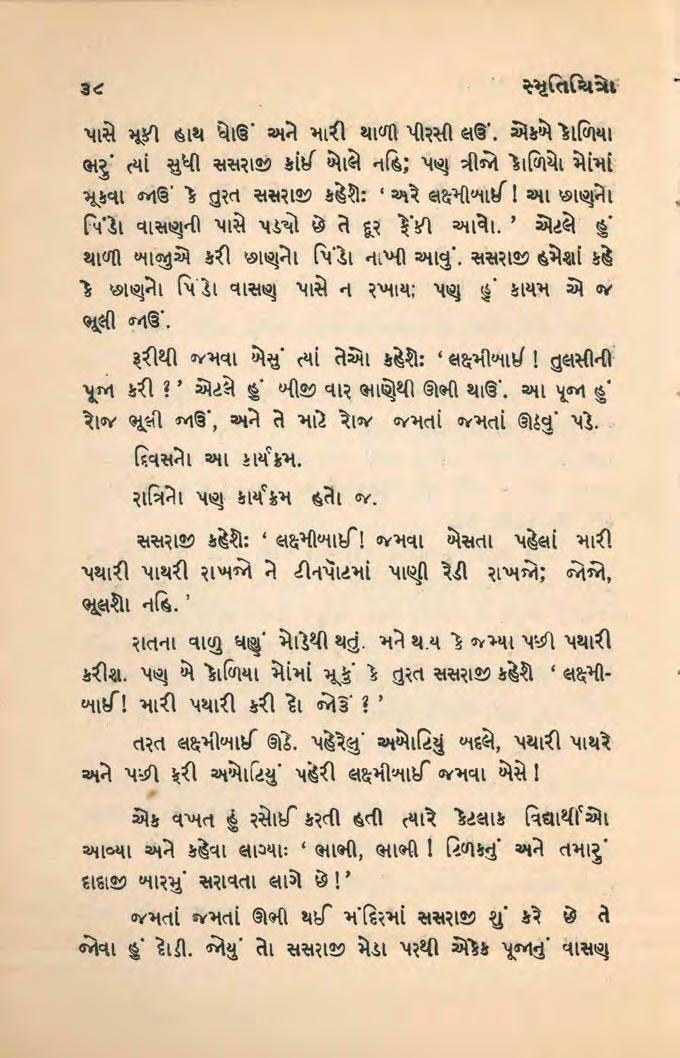 ૩૮ સ્મૃતિચિત્રો
પાસે મૂકી હાથ ધોઉં અને મારી થાળી પીરસી લઉં. એકબે કોળિયા
ભરું ત્યાં સુધી સસરાજી કાંઈ બોલે નહિ; પણ ત્રીજો કોળિયો મોંમાં
મૂકવા જાઉં કે તુરત સસરાજી કહેશે: ‘ અરે લક્ષ્મીબાઈ ! આ છાણનો
પિંડો વાસણની પાસે પડ્યો છે તે દૂર ફેંકી આવો. ’ એટલે હું
થાળી બાજુએ કરી છાણનો પિંડો નાખી આવું. સસરાજી હમેશાં કહે
કે છાણનો પિંડો વાસણ પાસે ન રખાય; પણ હું કાયમ એ જ
ભૂલી જાઉં.
ફરીથી જમવા બેસું ત્યાં તેઓ કહેશે: ‘ લક્ષ્મીબાઈ ! તુલસીની
પૂજા કરી ? ’ એટલે હું બીજી વાર ભાણેથી ઊભી થાઉં. આ પૂજા હું
રોજ ભૂલી જાઉં, અને તે માટે રોજ જમતાં જમતાં ઊઠવું પડે.
દિવસનો આ કાર્યક્રમ.
રાત્રિનો પણ કાર્યક્રમ હતો જ.
સસરાજી કહેશે: ‘ લક્ષ્મીબાઈ! જમવા બેસતા પહેલાં મારી
પથારી પાથરી રાખજો ને ટીનપૉટમાં પાણી રેડી રાખજો; જોજો,
ભૂલશો નહિ. ’
રાતના વાળુ ઘણું મોડેથી થતું. મને થ.ય કે જમ્યા પછી પથારી
કરીશ. પણ બે કોળિયા મોંમાં મૂકું કે તુરત સસરાજી કહેશે ‘ લક્ષ્મી-
બાઈ! મારી પથારી કરી દો જોઉં ? ’
તરત લક્ષ્મીબાઈ ઊઠે. પહેરેલું અબોટિયું બદલે, પથારી પાથરે
અને પછી ફરી અબોટિયું પહેરી લક્ષ્મીબાઈ જમવા બેસે !
એક વખત હું રસોઈ કરતી હતી ત્યારે કેટલાક વિદ્યાર્થીઓ
આવ્યા અને કહેવા લાગ્યા: ‘ ભાભી, ભાભી ! ટિળકનું અને તમારું
દાદાજી બારમું સરાવતા લાગે છે !’
જમતાં જમતાં ઊભી થઈ મંદિરમાં સસરાજી શું કરે છે તે
જોવા હું દોડી. જોયું તો સસરાજી મેડા પરથી એકેક પૂજાનું વાસણ